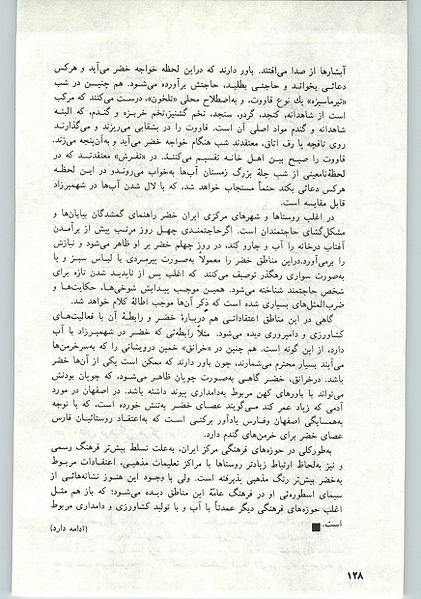 آبشارها از صدا می‌افتند. باور دارند که دراین لحظه خواجه خضر می‌آید و هرکس
دعائی بخواند و حاجتی بطلبد، حاجتش برآورده می‌شود. هم چنیـن در شب
«تیرماسیزه» یك نوع قاووت، و به‌اصطلاح محلی «تلخون»، درست می‌کنند که مرکب
است از شاهدانه، کنجد، گردو، سنجد، تخم گشنیز، تخم خربـزه و گندم، که البته
شاهدانه و گندم مواد اصلی آن است. قاووت را در بشقابی می‌ریزند و می‌گذارنـد
روی تاقچه یا رف اتاق. معتقدند شب هنگام خواجه خضر می‌آید و به‌آن‌پنجه می‌زند.
قاووت را صبـح بیـن اهـل خانـه تقسیـم می‌کننـد. در «تفـرش» معتقدنـد که در
لحظه‌نامعینی از شب چلۀ بزرگ زمستان آب‌ها به‌خواب می‌روندو در ایـن لحظـه
هرکس دعائی بکند حتماً مستجاب خواهد شد، که با لال شدن آب‌ها در شهمیرزاد
قابل مقایسه است.
در اغلب روستاها و شهرهای مرکزی ایران خضر راهنمای گمشدگان بیابان‌ها و
مشکل‌گشای حاجتمندان است. اگرحاجتمنـدی چهـل روز مرتـب پیش از برآمـدن
آفتاب درخانه را آب و جارو کند، در روز چهلم خضر بر او ظاهر می‌شود و نیازش
را برمی‌آورد.دراین مناطق خضر را معمولاً به‌صورت پیرمردی با لباس سبـز و یا
به‌صورت سواری رهگذر توصیف می‌کنند که اغلب پس از ناپدید شدن تازه برای
شخص حاجتمند شناخته می‌شود. همین موجـب پیدایش شوخی‌ها، حکایت‌ها و
ضرب‌المثل‌های بسیاری شده است که ذکر آن‌ها موجب اطالۀ کلام خواهد شد.
گاهی در این مناطق اعتقاداتـی هم دربـارۀ خضـر و رابطـۀ آن با فعالیت‌های
کشاورزی و دامپروری دیده می‌شود. مثلاً رابطه‌ئی که خضـر در شهمیـرزاد با آب
دارد، از این گونه است. هم چنین در «خرانق» خمین درویشانی را که به‌سرخرمن‌ها
می‌آیند بسیار محترم می‌شمارند، چون باور دارند که ممکن است یکی از آن‌ها خضر
باشد. درخرانق، خضـر گاهـی به‌صورت چوپان ظاهـر می‌شود، که چوپان بودنش
می‌تواند با باورهای کهن مربوط به‌دامداری پیوند داشته باشد. در اصفهان در مورد
آدمی که زیاد عمر کند مـی‌گویند عصـای خضـر به‌تنش خورده است. که با توجه
به‌همسـایگی اصفهان وفـارس یادآور برکتـی است کـه به‌اعتقـاد روستائیـان فارس
عصای خضر برای خرمن‌های گندم دارد.
به‌طورکلی در حوزه‌های فرهنگی مرکز ایران، به‌علت تسلـط بیش‌تر فرهنگ رسمی
و نیز به‌لحاظ ارتباط زیادتر روستاها با مراکز تعلیمات مذهبـی، اعتقـادات مربـوط
به‌خضر بیش‌تر رنگ مذهبی پذیرفته است. ولی با وجود این هنـوز نشانه‌هائـی از
سیمای اسطوره‌ئی او در فرهنگ عامّۀ این مناطق دیـده می‌شود؛ که باز هم مثـل
اغلب حوزه‌های فرهنگی دیگر عمدتاً با آب و با تولید کشاورزی و دامداری مربوط
است.
(ادامه دارد)
۱۲۸